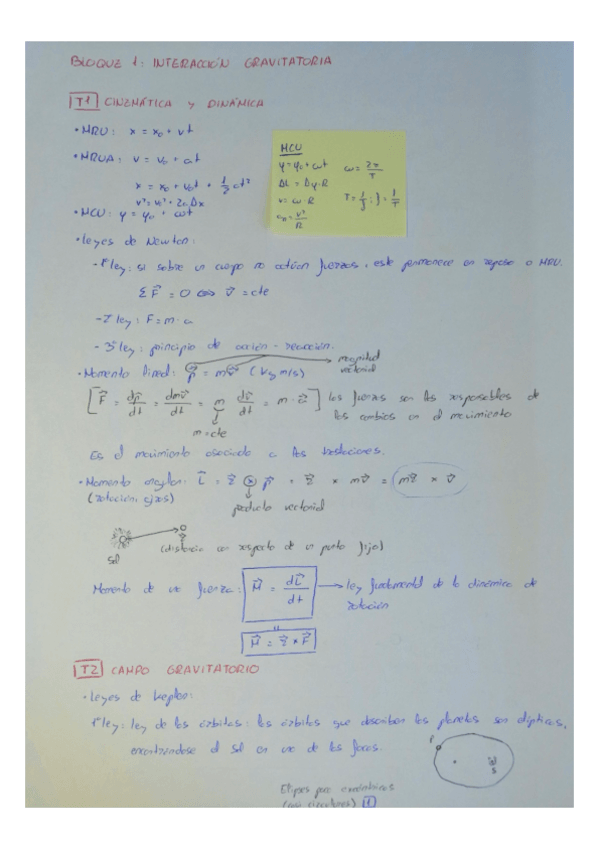 BLOQUE 1: INTERACCIÓN GRAVITATORIA
T1 CINEMÁTICA y DINÁMICA
• MRU: x = x₀ + vt
• MRUA: v = v₀ + at
x = x₀ + v₀t + 1/2 at²
v² = v₀² + 2aΔx
• MCU: φ = φ₀ + ωt
MCU
φ = φ₀ + ωt ω = 2π/T
ΔL = Δφ·R
v = ω·R T = 1/f ; f = 1/T
aₙ = v²/R
• Leyes de Newton:
- 1ª ley: si sobre un cuerpo no actúan fuerzas, este permanece en reposo o MRU.
ΣF⃗ = 0 ⇔ v⃗ = cte
- 2ª ley: F = m·a
- 3ª ley: principio de acción - reacción.
magnitud
vectorial
• Momento lineal: p⃗ = mv⃗ (kg m/s)
[F⃗ = dp⃗/dt = dmv⃗/dt = m dv⃗/dt = m·a⃗] las fuerzas son las responsables de
los cambios en el movimiento
m = cte
Es el movimiento asociado a las traslaciones.
• Momento angular: L⃗ = r⃗ × p⃗ = r⃗ × mv⃗ = mr⃗ × v⃗
(rotación, ejes)
producto vectorial
Sol
(distancia con respecto de un punto fijo)
Momento de una fuerza: M⃗ = dL⃗/dt → ley fundamental de la dinámica de
rotación
M⃗ = r⃗ × F⃗
T2 CAMPO GRAVITATORIO
• Leyes de Kepler:
1ª ley: ley de las órbitas: las órbitas que describen los planetas son elípticas,
encontrándose el Sol en uno de los focos.
P
S
Elipses poco excéntricas
(casi circulares) 1